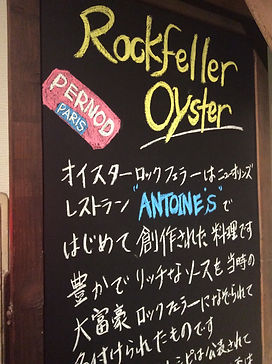 Rockfeller
Oyster
PERNOD
PARIS
オイスターロックフェラーはニューオリンズ
レストラン "ANTOINE'S" で
はじめて 創作された 料理です
豊かで リッチなソースを 当時の
大富豪 ロックフェラーになぞらえて
名付けられたものです
レシピは公表されて